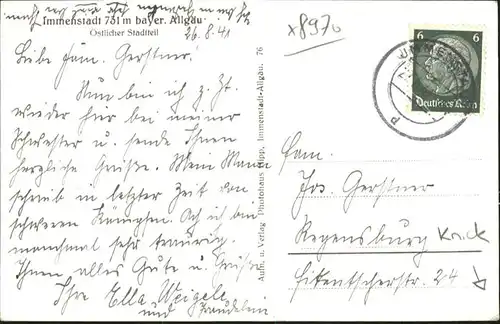 Immenstadt 731 m bayer. Allgäu
Östlicher Stadtteil
26.8.41
Liebe Fam. Gerstner!
Nun bin ich z. Zt.
wieder hier bei meiner
Schwester u. sende Ihnen
herzliche Grüße. Mein Mann
schrieb in letzter Zeit von
schweren Kämpfen. Ach ich bin
manchmal sehr traurig.
Ihnen alles Gute u. Grüße
Ihre Ella Weigele
und
Aufn. u. Verlag Photohaus Hipp, Immenstadt-Allgäu. 76
x8970
6 6
Deutsches Reich
Fam.
Jos. Gerstner
Regensburg
Knick
Fikentscherstr. 24